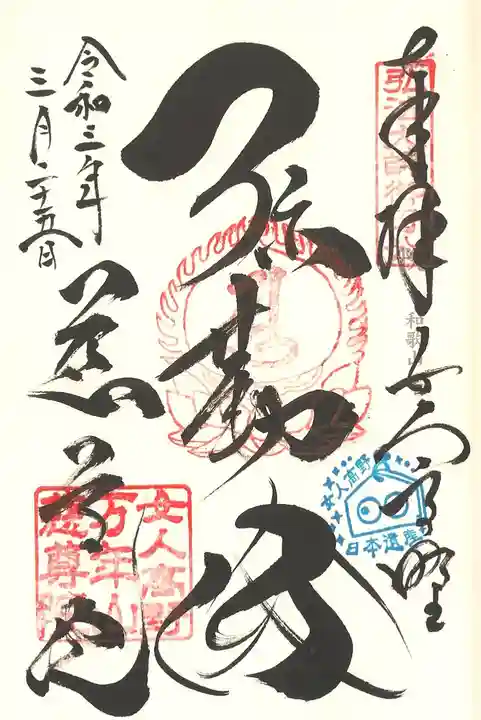 奉拝
女人高野
和歌山
弥勒佛
慈尊院
令和三年
三月二十五日
女人高野
日本遺産
女人高野
万年山
慈尊院